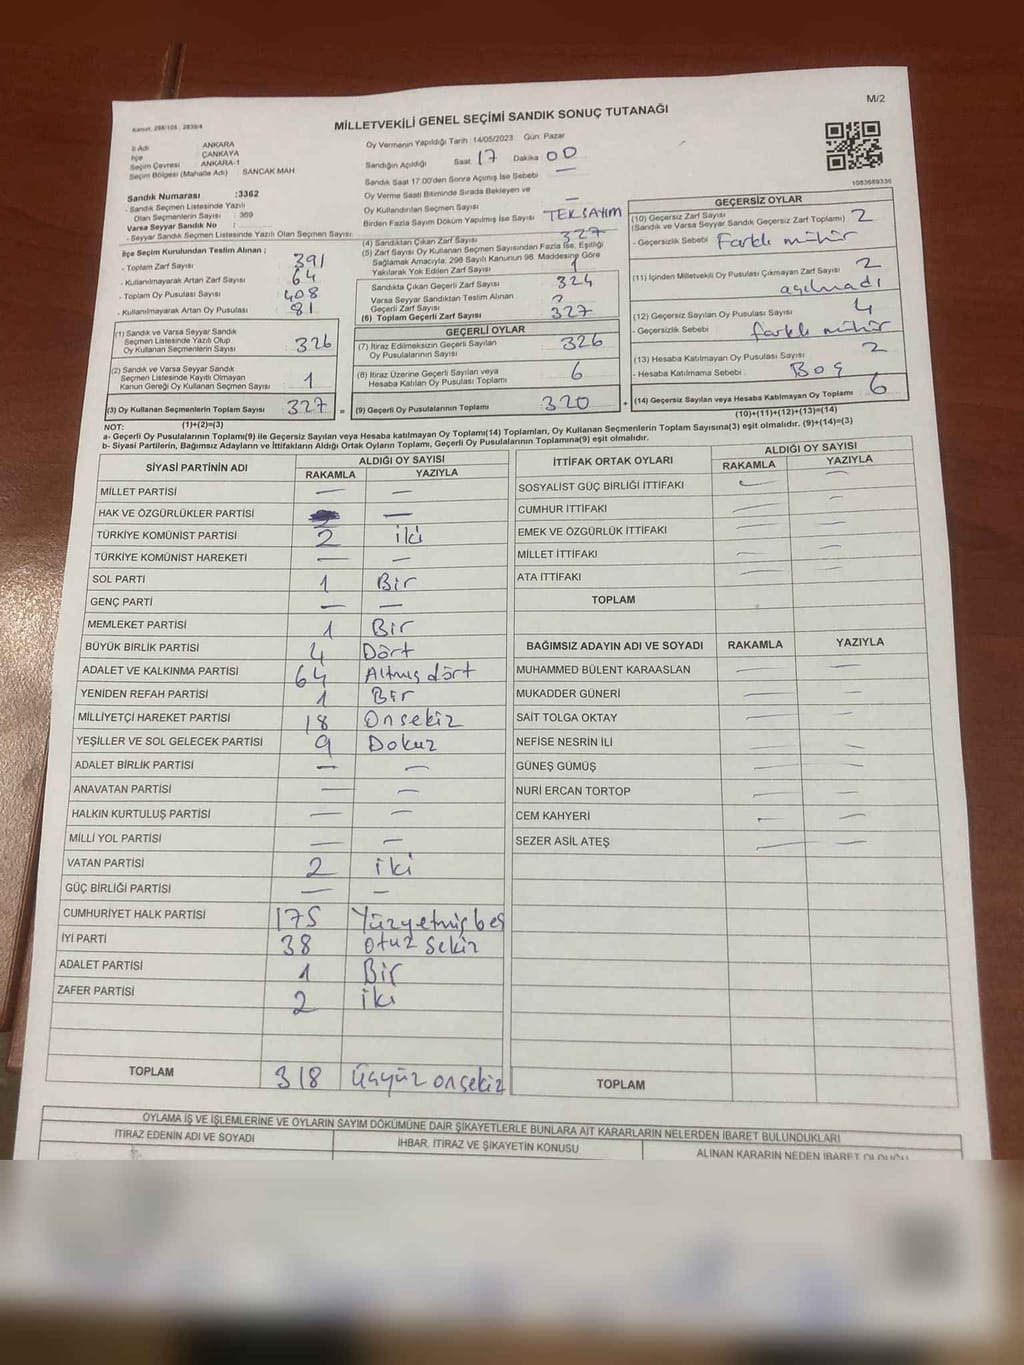 M/2
MİLLETVEKİLİ GENEL SEÇİMİ SANDIK SONUÇ TUTANAĞI
İl Adı ANKARA
İlçe ÇANKAYA
Seçim Çevresi ANKARA-1
Seçim Bölgesi (Mahalle Adı) SANCAK MAH
Sandık Numarası :3362
- Sandık Seçmen Listesinde Yazılı
Olan Seçmenlerin Sayısı : 369
Varsa Seyyar Sandık No :
- Seyyar Sandık Seçmen Listesinde Yazılı Olan Seçmen Sayısı:
Oy Vermenin Yapıldığı Tarih :14/05/2023 Gün: Pazar
Sandığın Açıldığı Saat 17 Dakika 00
Sandık Saat 17:00'den Sonra Açılmış İse Sebebi —
Oy Verme Saati Bitiminde Sırada Bekleyen ve
Oy Kullandırılan Seçmen Sayısı —
Birden Fazla Sayım Döküm Yapılmış İse Sayısı TEK SAYIM
1083689336
İlçe Seçim Kurulundan Teslim Alınan ;
- Toplam Zarf Sayısı 391
- Kullanılmayarak Artan Zarf Sayısı 64
- Toplam Oy Pusulası Sayısı 408
- Kullanılmayarak Artan Oy Pusulası 81
(1) Sandık ve Varsa Seyyar Sandık
Seçmen Listesinde Yazılı Olup
Oy Kullanan Seçmenlerin Sayısı 326
(2) Sandık ve Varsa Seyyar Sandık
Seçmen Listesinde Kayıtlı Olmayan
Kanun Gereği Oy Kullanan Seçmen Sayısı 1
(3) Oy Kullanan Seçmenlerin Toplam Sayısı 327
(1)+(2)=(3)
(4) Sandıktan Çıkan Zarf Sayısı 327
(5) Zarf Sayısı Oy Kullanan Seçmen Sayısından Fazla İse, Eşitliği
Sağlamak Amacıyla, 298 Sayılı Kanunun 98. Maddesine Göre
Yakılarak Yok Edilen Zarf Sayısı 1
Sandıkta Çıkan Geçerli Zarf Sayısı 324
Varsa Seyyar Sandıktan Teslim Alınan
Geçerli Zarf Sayısı
(6) Toplam Geçerli Zarf Sayısı 327
GEÇERLİ OYLAR
(7) İtiraz Edilmeksizin Geçerli Sayılan
Oy Pusulalarının Sayısı 326
(8) İtiraz Üzerine Geçerli Sayılan veya
Hesaba Katılan Oy Pusulası Toplamı 6
= (9) Geçerli Oy Pusulalarının Toplamı 320
GEÇERSİZ OYLAR
(10) Geçersiz Zarf Sayısı
(Sandık ve Varsa Seyyar Sandık Geçersiz Zarf Toplamı) 2
- Geçersizlik Sebebi Farklı mühür
(11) İçinden Milletvekili Oy Pusulası Çıkmayan Zarf Sayısı 2
açılmadı
(12) Geçersiz Sayılan Oy Pusulası Sayısı 4
- Geçersizlik Sebebi farklı mühür
(13) Hesaba Katılmayan Oy Pusulası Sayısı 2
- Hesaba Katılmama Sebebi BOŞ
+ (14) Geçersiz Sayılan veya Hesaba Katılmayan Oy Toplamı 6
(10)+(11)+(12)+(13)=(14)
NOT:
a- Geçerli Oy Pusulalarının Toplamı(9) ile Geçersiz Sayılan veya Hesaba katılmayan Oy Toplamı(14) Toplamları, Oy Kullanan Seçmenlerin Toplam Sayısına(3) eşit olmalıdır. (9)+(14)=(3)
b- Siyasi Partilerin, Bağımsız Adayların ve İttifakların Aldığı Oyların Toplamı, Geçerli Oy Pusulalarının Toplamına(9) eşit olmalıdır.
SİYASİ PARTİNİN ADI ALDIĞI OY SAYISI
RAKAMLA YAZIYLA
MİLLET PARTİSİ — —
HAK VE ÖZGÜRLÜKLER PARTİSİ —
TÜRKİYE KOMÜNİST PARTİSİ 2 iki
TÜRKİYE KOMÜNİST HAREKETİ — —
SOL PARTİ 1 Bir
GENÇ PARTİ — —
MEMLEKET PARTİSİ 1 Bir
BÜYÜK BİRLİK PARTİSİ 4 Dört
ADALET VE KALKINMA PARTİSİ 64 Altmış dört
YENİDEN REFAH PARTİSİ 1 Bir
MİLLİYETÇİ HAREKET PARTİSİ 18 Onsekiz
YEŞİLLER VE SOL GELECEK PARTİSİ 9 Dokuz
ADALET BİRLİK PARTİSİ — —
ANAVATAN PARTİSİ — —
HALKIN KURTULUŞ PARTİSİ — —
MİLLİ YOL PARTİSİ — —
VATAN PARTİSİ 2 iki
GÜÇ BİRLİĞİ PARTİSİ — —
CUMHURİYET HALK PARTİSİ 175 Yüzyetmişbeş
İYİ PARTİ 38 otuz sekiz
ADALET PARTİSİ 1 Bir
ZAFER PARTİSİ 2 iki
TOPLAM 318 üçyüz onsekiz
İTTİFAK ORTAK OYLARI ALDIĞI OY SAYISI
RAKAMLA YAZIYLA
SOSYALİST GÜÇ BİRLİĞİ İTTİFAKI — —
CUMHUR İTTİFAKI — —
EMEK VE ÖZGÜRLÜK İTTİFAKI — —
MİLLET İTTİFAKI — —
ATA İTTİFAKI — —
TOPLAM
BAĞIMSIZ ADAYIN ADI VE SOYADI RAKAMLA YAZIYLA
MUHAMMED BÜLENT KARAASLAN — —
MUKADDER GÜNERİ — —
SAİT TOLGA OKTAY — —
NEFİSE NESRİN İLİ — —
GÜNEŞ GÜMÜŞ — —
NURİ ERCAN TORTOP — —
CEM KAHYERİ — —
SEZER ASİL ATEŞ — —
TOPLAM
OYLAMA İŞ VE İŞLEMLERİNE VE OYLARIN SAYIM DÖKÜMÜNE DAİR ŞİKAYETLERLE BUNLARA AİT KARARLARIN NELERDEN İBARET BULUNDUKLARI
İTİRAZ EDENİN ADI VE SOYADI İHBAR, İTİRAZ VE ŞİKAYETİN KONUSU ALINAN KARARIN NEDEN İBARET OLDUĞU